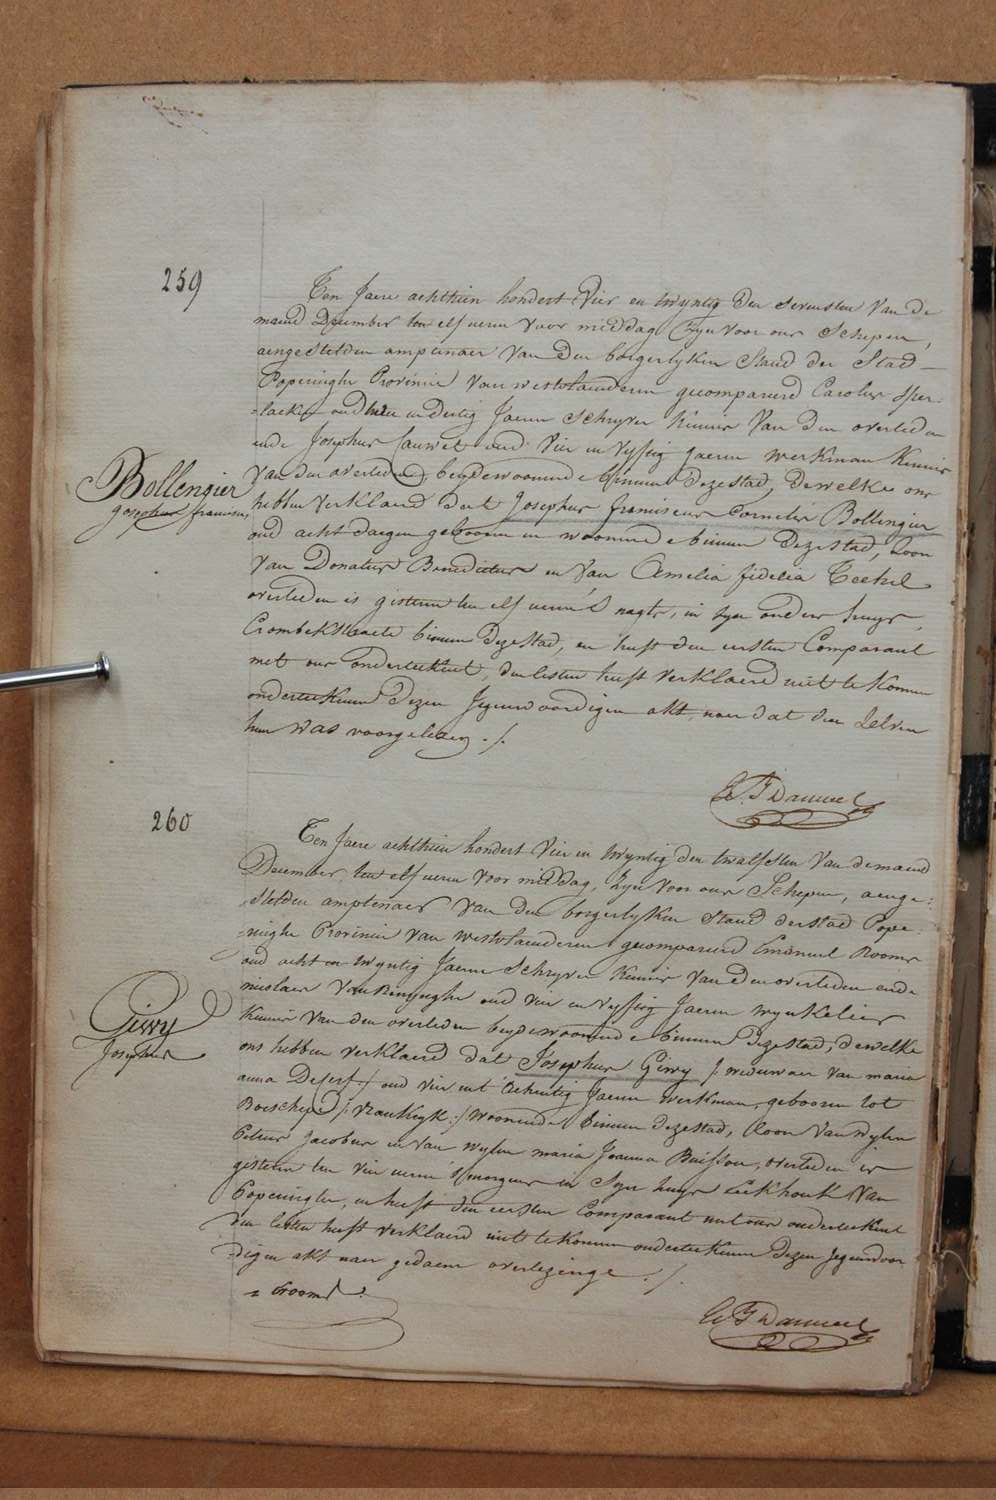 259
Ten Jaere achthien hondert Vier en twyntig den sevensten Van de
maend December ten elf ueren voor middag Zyn voor ons Schepen,
aengestelden amptenaer Van den borgerlyken Stand der Stad
Poperinghe Provincie Van westvlaenderen gecompareerd Carolus
oud en dertig Jaeren Schryver kennis Van den overleden
ende Josephus Cauwet oud vier en vyftig jaeren werkman kennis
Van den overleden, beyde woonende binnen deze stad, dewelke ons
Bollengier
Josephus francisus
hebben verklaerd dat Josephus franciscus Cornelis Bollengier
oud acht daegen gebooren en woonende binnen deze stad, Zoon
Van Donatus Benedictus en Van Amelia fidelia
overleden is gisteren ten elf ueren 's nagts, in zyn ouders huys,
Crombekstraete binnen deze stad, en heeft den eersten Comparant
met ons onderteekent, den lesten heeft verklaerd niet te konnen
onderteekenen dezen Jegenwoordigen akt, naer dat den Zelven
hun was voorgelezen ./.
260
Ten Jaere achthien hondert Vier en twyntig den twalfsten Van de maend
December, ten elf ueren voor middag, Zyn voor ons Schepen, aenge:
stelden amptenaer Van den borgerlyken Stand der stad Pope:
ringhe Provincie Van westvlaenderen gecompareerd Emanuel Rooms
oud acht en twyntig Jaeren Schryver kennis Van den overleden ende
oud vier en vyftig Jaeren wynkelier
Giwy
Josephus
kennis Van den overleden beyde woonende binnen deze stad, dewelke
ons hebben verklaerd dat Josephus Giwy /: weduwaer Van maria
anna :/ oud vier en t'achentig Jaeren werkman, gebooren tot
Boeschepe /: vrankryk :/ woonende binnen deze stad, Zoon Van wylen
Petrus Jacobus en Van wylen maria Joanna Buisson, overleden is
gisteren ten vier ueren 's morgens in Zyn huys Eekhouk Van
Poperinghe, en heeft den eersten Comparant met ons onderteekent
den lesten heeft verklaerd niet te konnen onderteekenen dezen Jegenwoor:
digen akt naer gedaene overlezinge ./.